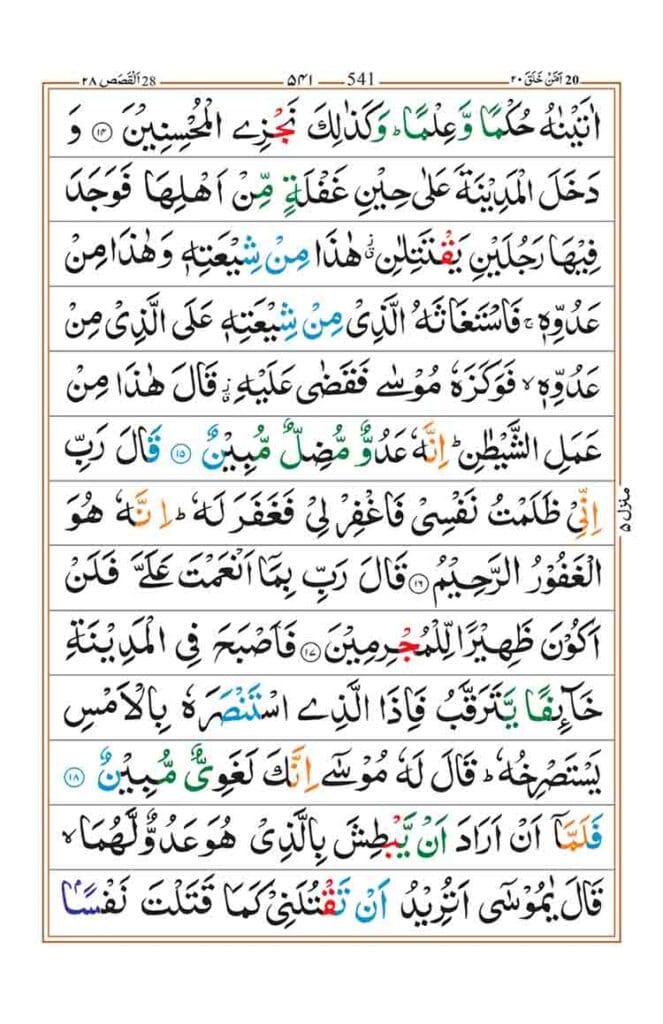 20 اَمَّنْ خَلَقَ ٢٠ 541 ۵۴۱ 28 اَلْقَصَص ٢٨
اٰتَيْنٰهُ حُكْمًا وَّعِلْمًا ؕ وَكَذٰلِكَ نَجْزِے الْمُحْسِنِيْنَ ۝۱۴ وَ
دَخَلَ الْمَدِيْنَةَ عَلٰى حِيْنِ غَفْلَةٍ مِّنْ اَهْلِهَا فَوَجَدَ
فِيْهَا رَجُلَيْنِ يَقْتَتِلٰنِ ؗ هٰذَا مِنْ شِيْعَتِهٖ وَهٰذَا مِنْ
عَدُوِّهٖ ۚ فَاسْتَغَاثَهُ الَّذِىْ مِنْ شِيْعَتِهٖ عَلَى الَّذِىْ مِنْ
عَدُوِّهٖ ۙ فَوَكَزَهٗ مُوْسٰے فَقَضٰى عَلَيْهِ ؗ قَالَ هٰذَا مِنْ
عَمَلِ الشَّيْطٰنِ ؕ اِنَّهٗ عَدُوٌّ مُّضِلٌّ مُّبِيْنٌ ۝۱۵ قَالَ رَبِّ
اِنِّىْ ظَلَمْتُ نَفْسِىْ فَاغْفِرْ لِىْ فَغَفَرَ لَهٗ ؕ اِنَّهٗ هُوَ
الْغَفُوْرُ الرَّحِيْمُ ۝۱۶ قَالَ رَبِّ بِمَاۤ اَنْعَمْتَ عَلَےَّ فَلَنْ
اَكُوْنَ ظَهِيْرًا لِّلْمُجْرِمِيْنَ ۝۱۷ فَاَصْبَحَ فِى الْمَدِيْنَةِ
خَآئِفًا يَّتَرَقَّبُ فَاِذَا الَّذِے اسْتَنْصَرَهٗ بِالْاَمْسِ
يَسْتَصْرِخُهٗ ؕ قَالَ لَهٗ مُوْسٰٓے اِنَّكَ لَغَوِىٌّ مُّبِيْنٌ ۝۱۸
فَلَمَّاۤ اَنْ اَرَادَ اَنْ يَّبْطِشَ بِالَّذِىْ هُوَ عَدُوٌّ لَّهُمَا ۙ
قَالَ يٰمُوْسٰٓى اَتُرِيْدُ اَنْ تَقْتُلَنِىْ كَمَا قَتَلْتَ نَفْسًاۢ
منزل ۵